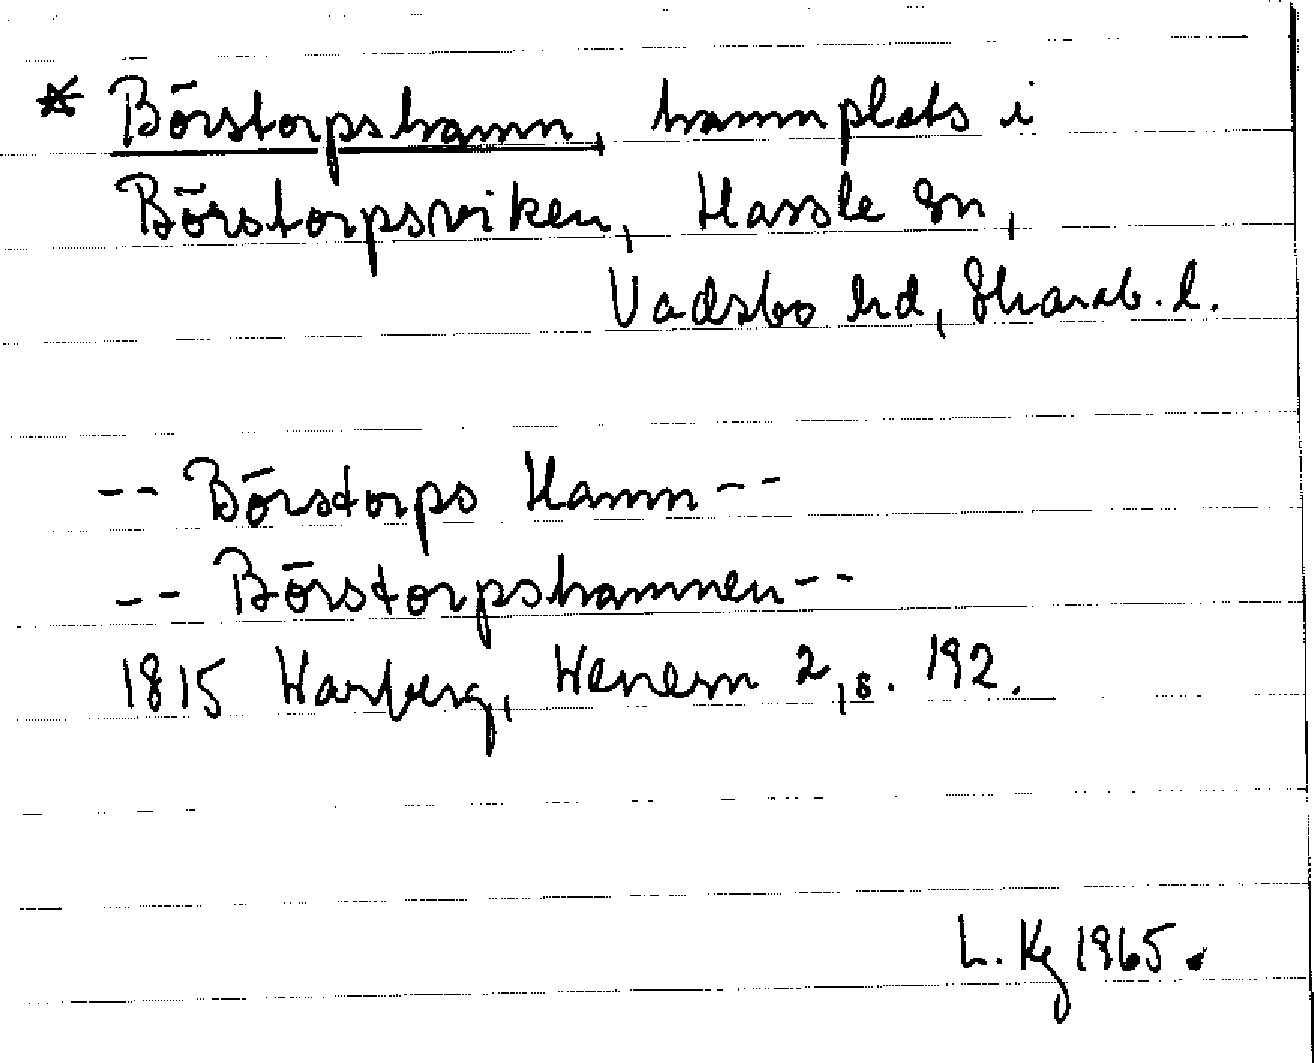 * Börstorpshamn, hamnplats i
Börstorpsviken, Hassle sn,
Vadsbo hd, Skarab. l.
-- Börstorps Hamn --
-- Börstorpshamnen --
1815 Warberg, Wenern 2, s. 192.
L. Kg 1965.